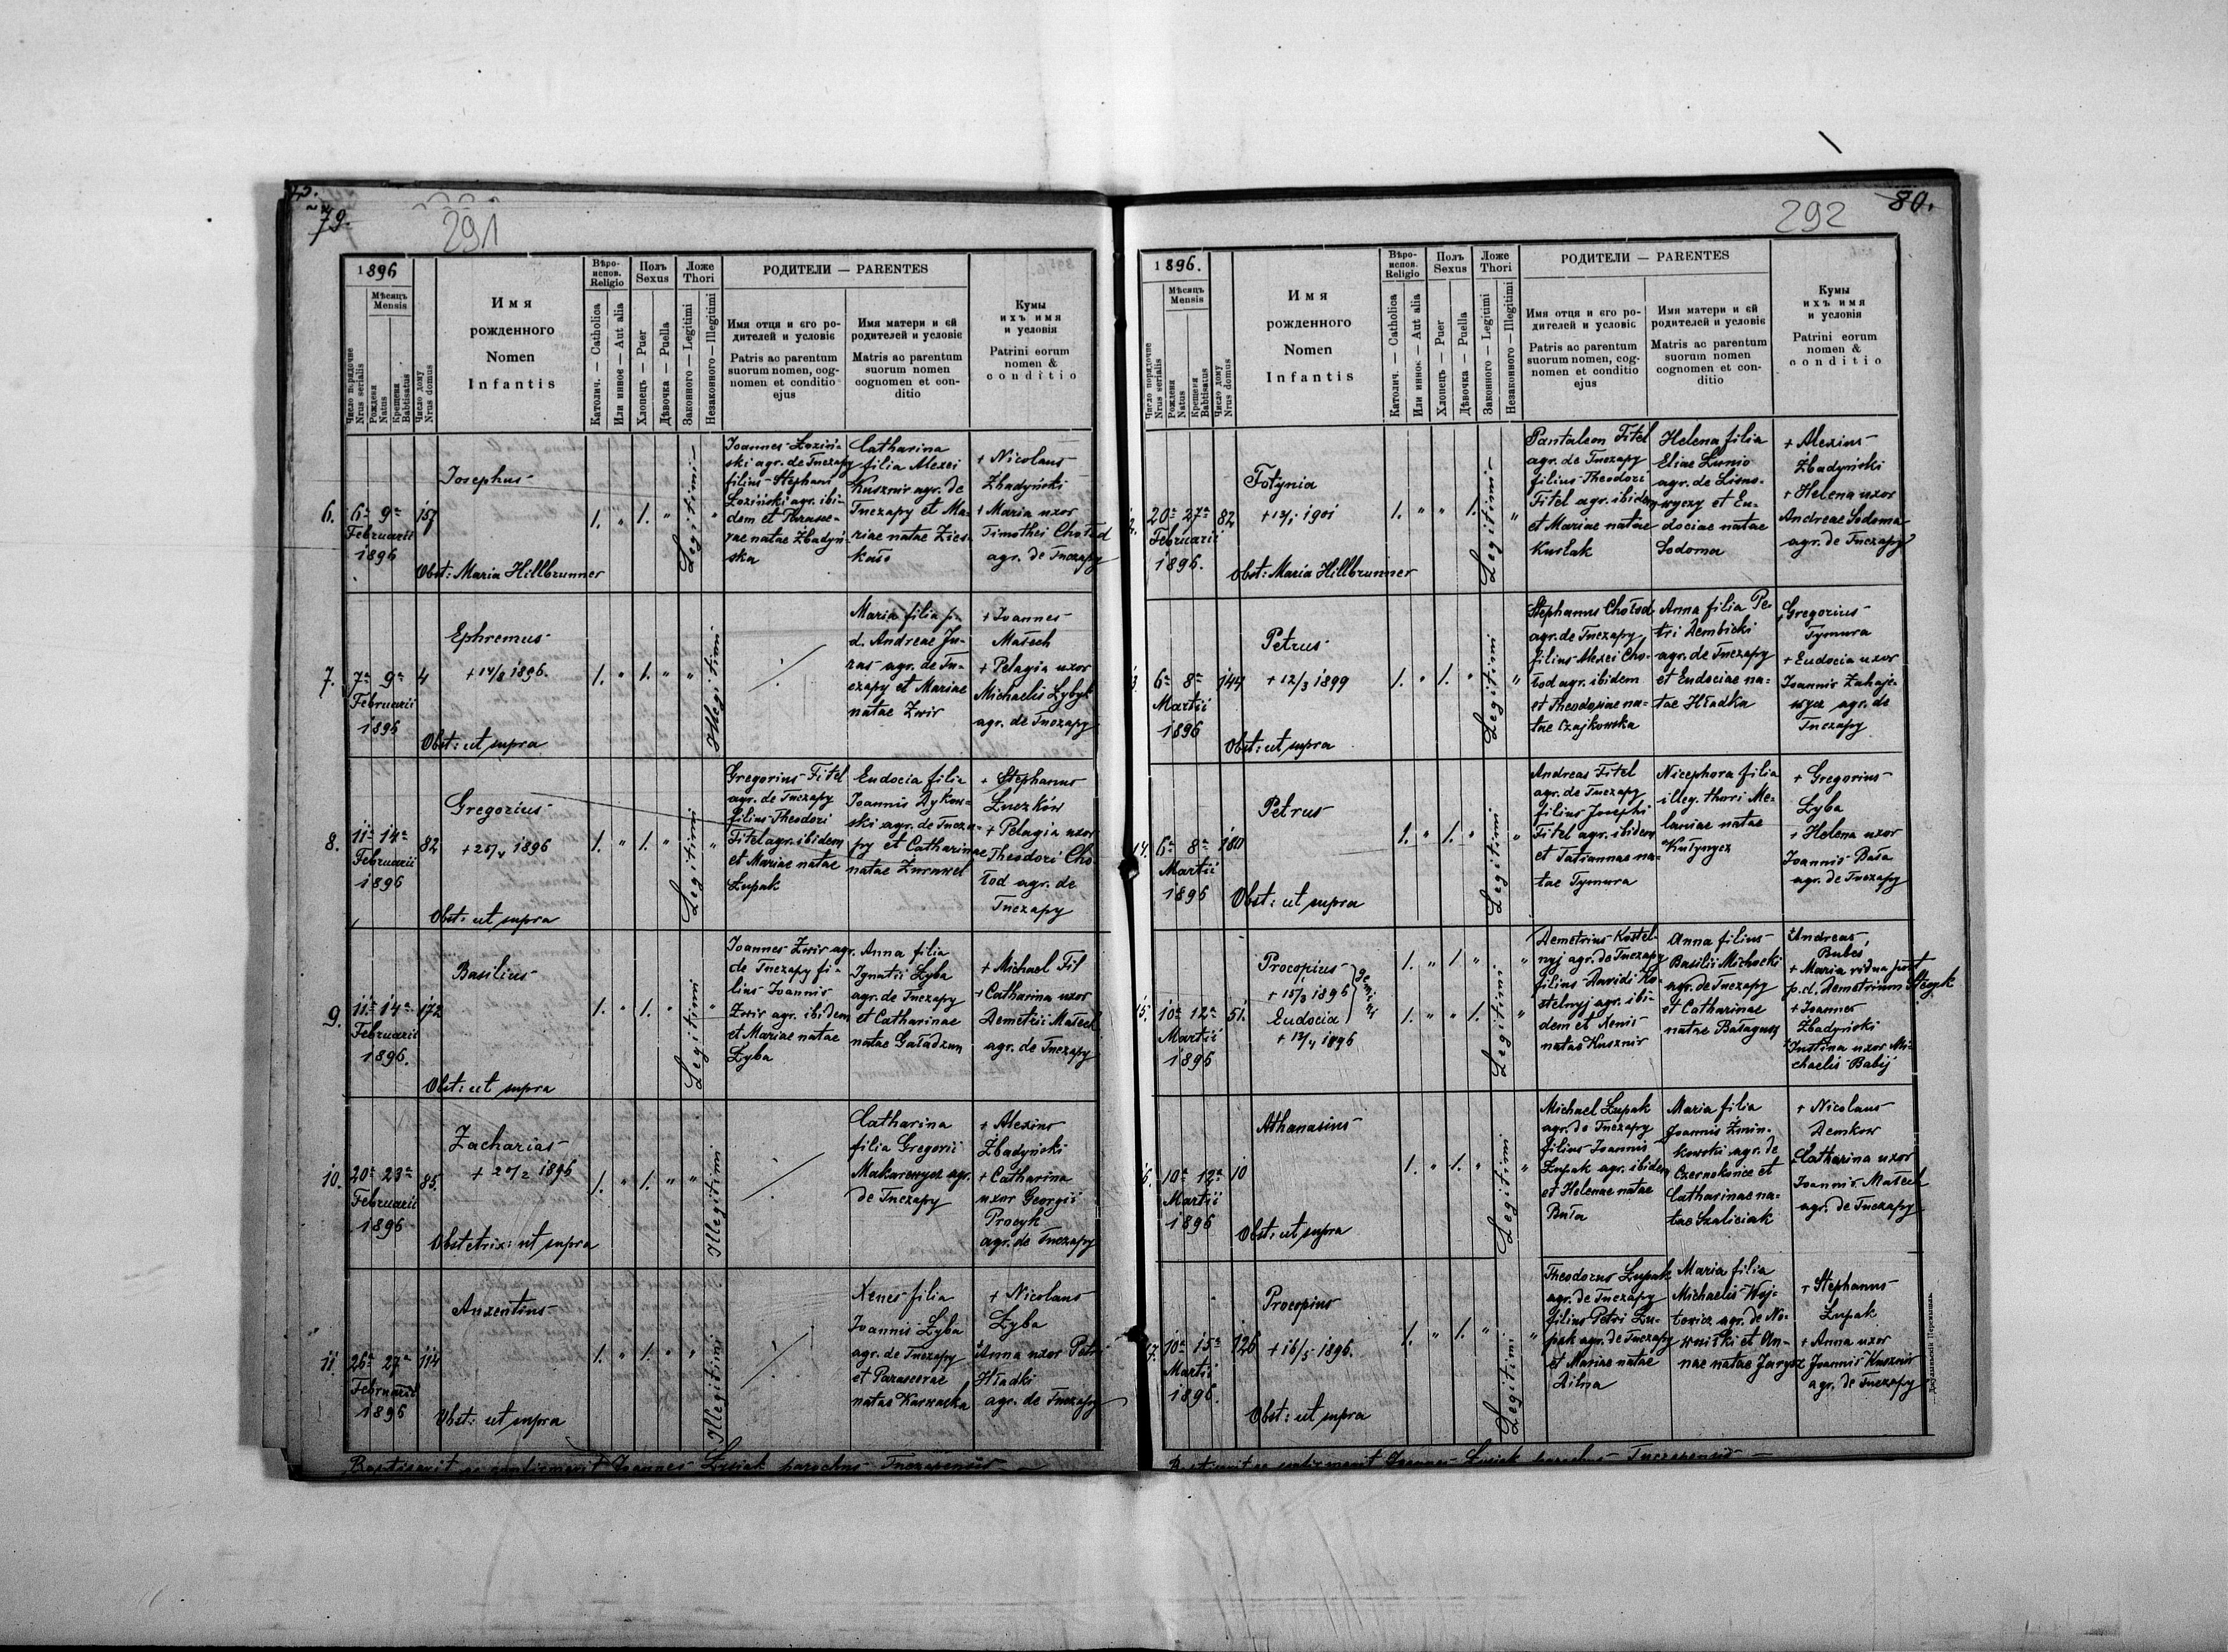 79.
291
1896
Мѣсяць
Mensis
Число порядочне
Nrus serialis
Рожденя
Natus
Крещеня
Babtisatus
Число дому
Nrus domus
Имя
рожденного
Nomen
Infantis
Вѣро-
испов.
Religio
Католич. — Catholica
Или инное — Aut alia
Полъ
Sexus
Хлопець — Puer
Дѣвочка — Puella
Ложе
Thori
Законного — Legitimi
Незаконного — Illegitimi
РОДИТЕЛИ — PARENTES
Имя отця и єго ро-
дителей и условіє
Patris ac parentum
suorum nomen, cog-
nomen et conditio
ejus
Имя матери и єй
родителей и условіє
Matris ac parentum
suorum nomen
cognomen et con-
ditio
Кумы
ихъ имя
и условія
Patrini eorum
nomen &
conditio
6.
6ª 9ª
Februarii
1896
157
Josephus
Obst: Maria Hillbrunner
1. " 1. " Legitimi "
Joannes Łoziń-
ski agr. de Tuczapy
filius Stephani
Łoziński agr. ibi-
dem et Parasce-
vae natae Zbadyń-
ska
Catharina
filia Alexei
Kusznir agr. de
Tuczapy et Ma-
riae natae Zies-
kało
+ Nicolaus
Zbadyński
+ Maria uxor
Timothei Chołod
agr. de Tuczapy
7.
7ª 9ª
Februarii
1896
4
Ephremus
+ 14/8 1896.
Obst: ut supra
1. " 1. " " Illegitimi
Maria filia p.
d. Andreae Ju-
ras agr. de Tu-
czapy et Mariae
natae Zwir
+ Joannes
Małech
+ Pelagia uxor
Michaelis Łybyk
agr. de Tuczapy
8.
11ª 14ª
Februarii
1896
82
Gregorius
+ 25/4 1896
Obst: ut supra
1. " 1. " Legitimi "
Gregorius Fitel
agr. de Tuczapy
filius Theodori
Fitel agr. ibidem
et Mariae natae
Łupak
Eudocia filia
Joannis Dykow-
ski agr. de Tucza-
py et Catharinae
natae Żurawel
+ Stephanus
Łuczków
+ Pelagia uxor
Theodori Cho-
łod agr. de
Tuczapy
9.
11ª 14ª
Februarii
1896.
172
Basilius
Obst: ut supra
1. " 1. " Legitimi "
Joannes Zwir agr.
de Tuczapy fi-
lius Joannis
Zwir agr. ibidem
et Mariae natae
Łyba
Anna filia
Ignatii Łyba
agr. de Tuczapy
et Catharinae
natae Gaładzun
+ Michael Fil
+ Catharina uxor
Demetrii Małech
agr. de Tuczapy
10.
20ª 23ª
Februarii
1896
85.
Zacharias
+ 25/2 1896
Obstetrix: ut supra
1. " 1. " " Illegitimi
Catharina
filia Gregorii
Makarewycz agr.
de Tuczapy
+ Alexius
Zbadyński
+ Catharina
uxor Georgii
Procyk
agr. de Tuczapy
11.
26ª 27ª
Februarii
1896
114
Auxentius
Obst: ut supra
1. " 1. " " Illegitimi
Xenes filia
Joannis Łyba
agr. de Tuczapy
et Parascevae
natae Karwacka
+ Nicolaus
Łyba
+ Anna uxor Petri
Hładki
agr. de Tuczapy
Baptisavit ac confirmavit Joannes Łysiak parochus Tuczapensis
80.
292
1896.
Мѣсяць
Mensis
Число порядочне
Nrus serialis
Рожденя
Natus
Крещеня
Babtisatus
Число дому
Nrus domus
Имя
рожденного
Nomen
Infantis
Вѣро-
испов.
Religio
Католич. — Catholica
Или инное — Aut alia
Полъ
Sexus
Хлопець — Puer
Дѣвочка — Puella
Ложе
Thori
Законного — Legitimi
Незаконного — Illegitimi
РОДИТЕЛИ — PARENTES
Имя отця и єго ро-
дителей и условіє
Patris ac parentum
suorum nomen, cog-
nomen et conditio
ejus
Имя матери и єй
родителей и условіє
Matris ac parentum
suorum nomen
cognomen et con-
ditio
Кумы
ихъ имя
и условія
Patrini eorum
nomen &
conditio
20ª 27ª
Februarii
1896.
82
Fotynia
+ 13/1 1901
Obst: Maria Hillbrunner
1. " " 1. Legitimi "
Pantaleon Fitel
agr. de Tuczapy
filius Theodori
Fitel agr. ibidem
et Mariae natae
Kusłak
Helena filia
Eliae Lunio
agr. de Lisno-
wyczy et Eu-
dociae natae
Sodoma
+ Alexius
Zbadyński
+ Helena uxor
Andreae Sodoma
agr. de Tuczapy
6ª 8ª
Martii
1896
144
Petrus
+ 12/3 1899
Obst: ut supra
1. " 1. " Legitimi "
Stephanus Chołod
agr. de Tuczapy
filius Alexei Cho-
łod agr. ibidem
et Theodosiae na-
tae Czajkowska
Anna filia Pe-
tri Dembicki
agr. de Tuczapy
et Eudociae na-
tae Hładka
Gregorius
Tymura
+ Eudocia uxor
Joannis Zahaje-
wycz agr. de
Tuczapy
14.
6ª 8ª
Martii
1896
Petrus
Obst: ut supra
1. " 1. " Legitimi "
Andreas Fitel
agr. de Tuczapy
filius Josephi
Fitel agr. ibidem
et Tatiannae na-
tae Tymura
Nicephora filia
illeg. thori Me-
laniae natae
Kułynycz
+ Gregorius
Łyba
+ Helena uxor
Joannis Bała
agr. de Tuczapy
15.
10ª 12ª
Martii
1896
51.
Procopius
+ 15/3 1896
Eudocia
+ 13/4 1896
Gemini
1. " 1. " "
1. " " 1. Legitimi "
Demetrius Kostel-
nyj agr. de Tuczapy
filius Davidi Ko-
stelnyj agr. ibi-
dem et Xenis
natae Kusznir
Anna filius
Basilii Michocki
agr. de Tuczapy
et Catharinae
natae Bałagusz
+ Andreas
Bubes
+ Maria vidua post
p.d. Demetrium Stecyk
+ Joannes
Zbadyński
+ Justina uxor Mi-
chaelis Babij
10ª 12ª
Martii
1896
10
Athanasius
Obst: ut supra
1. " 1. " Legitimi "
Michael Łupak
agr. de Tuczapy
filius Joannis
Łupak agr. ibidem
et Helenae natae
Bała
Maria filia
Joannis Żmin-
kowski agr. de
Czernokońce et
Catharinae na-
tae Szaliciak
+ Nicolaus
Demkow
+ Catharina uxor
Joannis Małech
agr. de Tuczapy
17.
10ª 15ª
Martii
1896.
126
Procopius
+ 16/5 1896.
Obst: ut supra
1. " 1. " Legitimi "
Theodorus Łupak
agr. de Tuczapy
filius Petri Łu-
pak agr. de Tuczapy
et Mariae natae
Dilna
Maria filia
Michaelis Woj-
towicz agr. de No-
wniski et An-
nae natae Jarysz
+ Stephanus
Łupak
+ Anna uxor
Joannis Kusznir
agr. de Tuczapy
Baptisavit ac confirmavit Joannes Łysiak parochus Tuczapensis